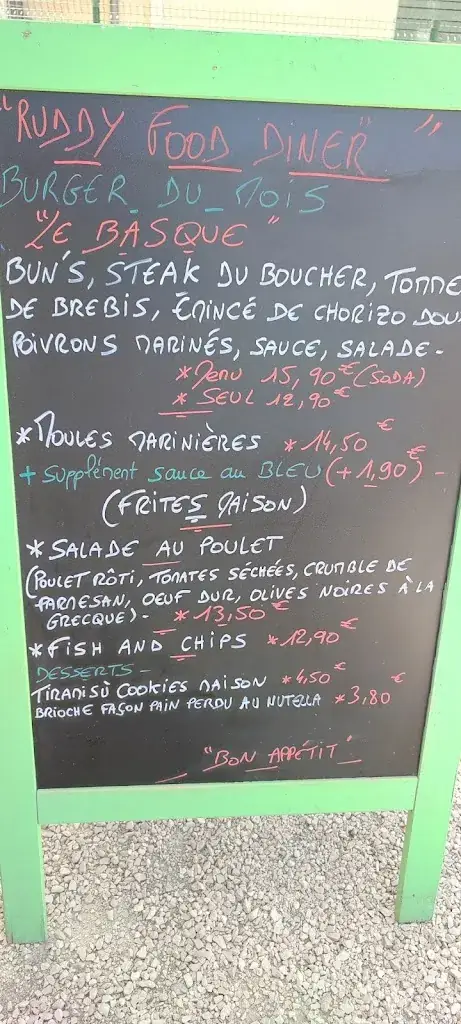 "RUDDY FOOD DINER"
BURGER DU MOIS
"LE BASQUE"
BUN'S, STEAK DU BOUCHER, TOMME
DE BREBIS, ÉMINCÉ DE CHORIZO DOU
POIVRONS MARINÉS, SAUCE, SALADE -
*MENU 15,90€ (SODA)
* SEUL 12,90€
*MOULES MARINIÈRES *14,50€
+ Supplément sauce au BLEU (+1,90€) -
(FRITES MAISON)
*SALADE AU POULET
(POULET RÔTI, TOMATES SÉCHÉES, CRUMBLE DE
PARMESAN, OEUF DUR, OLIVES NOIRES À LA
GRECQUE) - *13,50€
*FISH AND CHIPS *12,90€
DESSERTS -
TIRAMISÙ COOKIES MAISON *4,50€
BRIOCHE FAÇON PAIN PERDU AU NUTELLA *3,80€
"BON APPÉTIT"